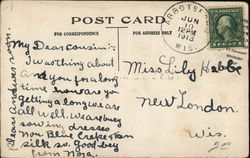 POST CARD
FOR CORRESPONDENCE
FOR ADDRESS ONLY
ABBOTSF
JUN
10
12PM
1913
WIS.
My Dear Cousin:-
I was thing about
and you for a long
time how are you
getting along we are
all well. We are busy
sowing dresses
now Blue Crepe & tan
silk so. Good bay
from Nora.
Please Answer soon.
Miss Lily Habbe
New London.
Wis.